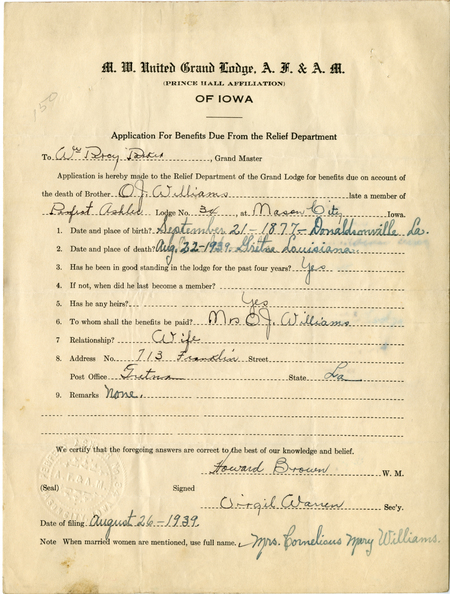 M. W. United Grand Lodge, A. F. & A. M.
(PRINCE HALL AFFILIATION)
OF IOWA
150
Application For Benefits Due From the Relief Department
To Wm , Grand Master
Application is hereby made to the Relief Department of the Grand Lodge for benefits due on account of
the death of Brother O J Williams late a member of
Lodge No. 30, at Mason City Iowa.
1. Date and place of birth? September 21-1877-Donaldsonville La.
2. Date and place of death? Aug. 22-1939. Gretna Louisiana.
3. Has he been in good standing in the lodge for the past four years? Yes
4. If not, when did he last become a member?
5. Has he any heirs? Yes
6. To whom shall the benefits be paid? Mrs O J Williams
7 Relationship? Wife
8 Address No. 713 Franklin Street
Post Office Gretna State La
9. Remarks None.
We certify that the foregoing answers are correct to the best of our knowledge and belief.
Howard Brown W. M.
(Seal) Signed
Virgil Warren Sec'y.
Date of filing August 26-1939.
Note When married women are mentioned, use full name. Mrs. Cornelious Mary Williams.